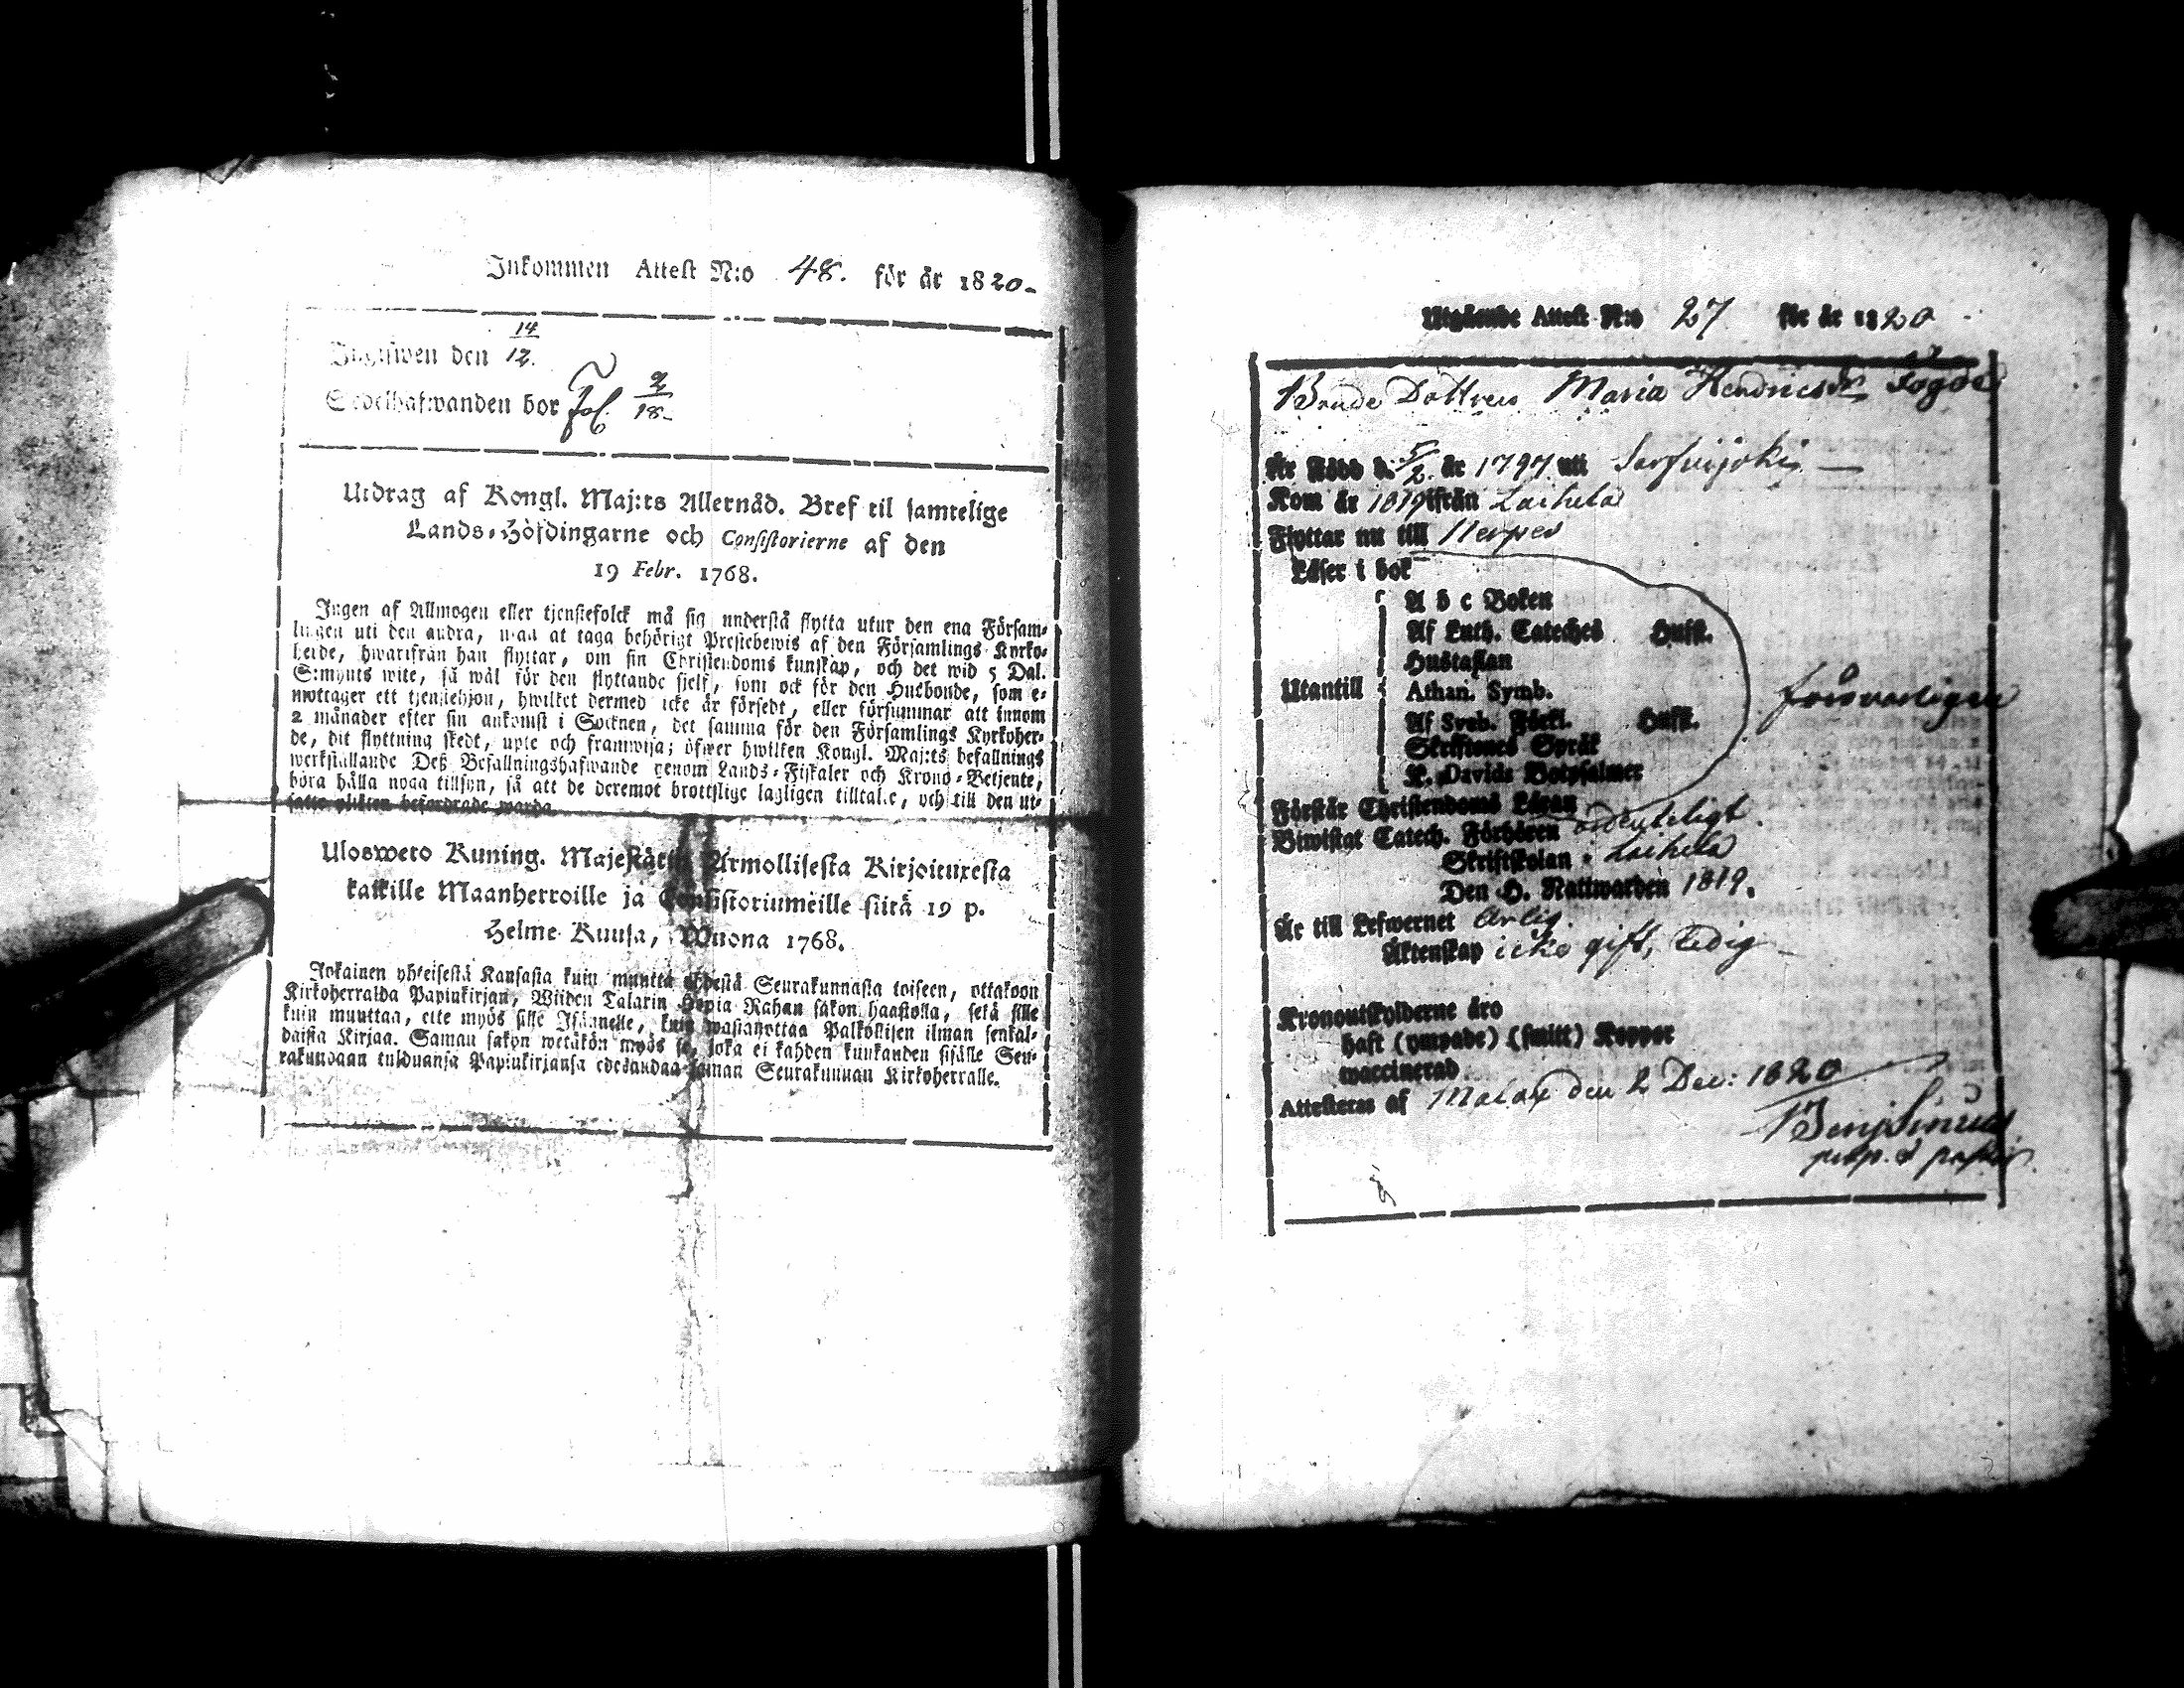 Inkommen Attest N:o 48. för år 1820.
14
Ingifwen den 12.
Sedelhafwanden bor fol. 2/18
Utdrag af Kongl. Maj:ts Allernåd. Bref til samtelige
Lands-Höfdingarne och Consistorierne af den
19 Febr. 1768.
Ingen af Allmogen eller tjenstefolck må sig understå flytta utur den ena Försam-
lingen uti den andra, utan at taga behörigt Prestebewis af den Församlings Kyrko-
herde, hwarifrån han flyttar, om sin Christendoms kunskap, och det wid 5 Dal.
S:mynts wite, så wäl för den flyttande sjelf, som ock för den Husbonde, som e-
mottager ett tjenstehjon, hwilket dermed icke är försedt, eller försummar att innom
2 månader efter sin ankomst i Socknen, det samma för den Församlings Kyrkoher-
de, dit flyttning skedt, upte och framwisa; öfwer hwilken Kongl. Maj:ts befallnings
werkställande Deß Befallningshafwande genom Lands-Fiskaler och Krono-Betjente,
böra hålla noga tillsyn, så att de deremot brottslige lagligen tilltalte, och till den ut-
satte plikten befordrade warda.
Uloswero Kuning. Majestätin Armollisesta Kirjoituxesta
kaikille Maanherroille ja Consistoriumeille siitä 19 p.
Helme Kuusa, Wuona 1768.
Jokainen yhteisestä Kansasta kuin muutta yhdestä Seurakunnasta toiseen, ottakoon
Kirkoherralda Papinkirjan, Wiiden Talarin Hopia Rahan sakon haastolla, sekä sille
kuin muuttaa, ette myös sille Isännelle, kuin wastanottaa Palkollisen ilman senkal-
daista Kirjaa. Saman sakon wetäkön myös se, joka ei kahden kuukauden sisälle Seu-
rakundaan tulduansa Papinkirjansa edesandaa saman Seurakunnan Kirkoherralle.
Utgående Attest N:o 27 för år 1820
Bonde Dottren Maria Hendricsdr
Är Född d. 5/2 år 1797 uti
Kom år 1819 ifrån Laihela
Flyttar nu till Nerpes
Läser i bok
A b c Boken
Af Luth. Cateches Husk.
Hustaflan
Utantill Athan. Symb.
Af Sveb. Förkl. Husk.
Skriftenes Språk
K. Davids Botpsalmer
försvarligen
Förstår Christendoms Läran
Biwistat Catech. Förhören ordenteligt
Skriftskolan - Laihela
Den H. Nattwarden 1819.
Är till Lefwernet ärlig.
Äktenskap icke gift, ledig
Kronoutskylderne äro
haft (ympade) (smitt) Koppor
waccinerad
Attesteras af Malax den 2 Dec: 1820